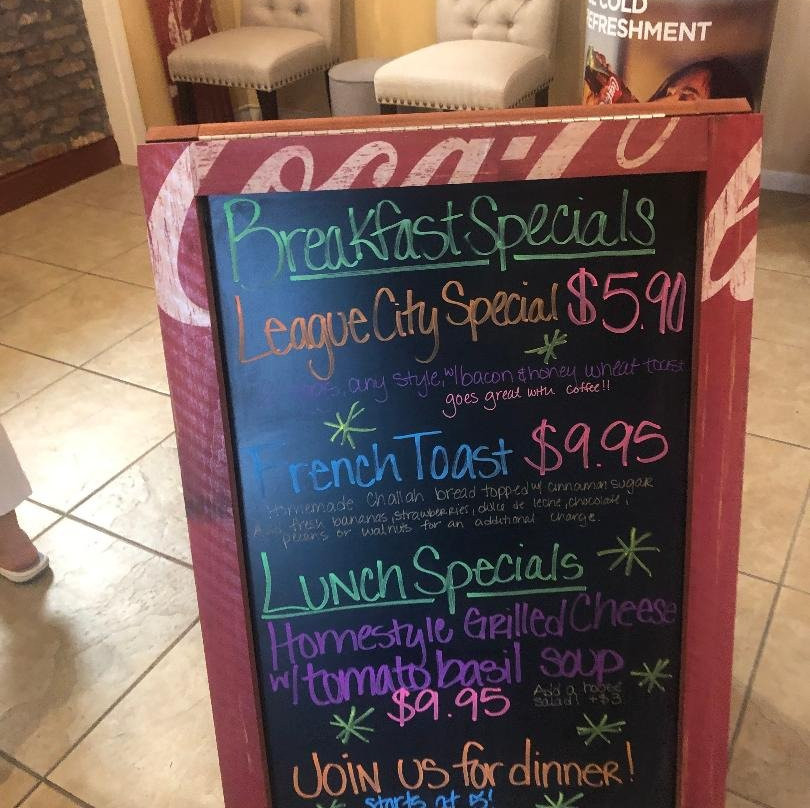 COLD
REFRESHMENT
Coca-Co
Breakfast Specials
League City Special $5.90
any style, w/ bacon & honey wheat toast
goes great with coffee!!
French Toast $9.95
Homemade challah bread topped w/ cinnamon sugar
Add fresh bananas, strawberries, dulce de leche, chocolate,
pecans or walnuts for an additional charge.
Lunch Specials
Homestyle Grilled Cheese
w/ tomato basil soup
$9.95 Add a house
salad! +$3
Join us for dinner!
starts at 5!